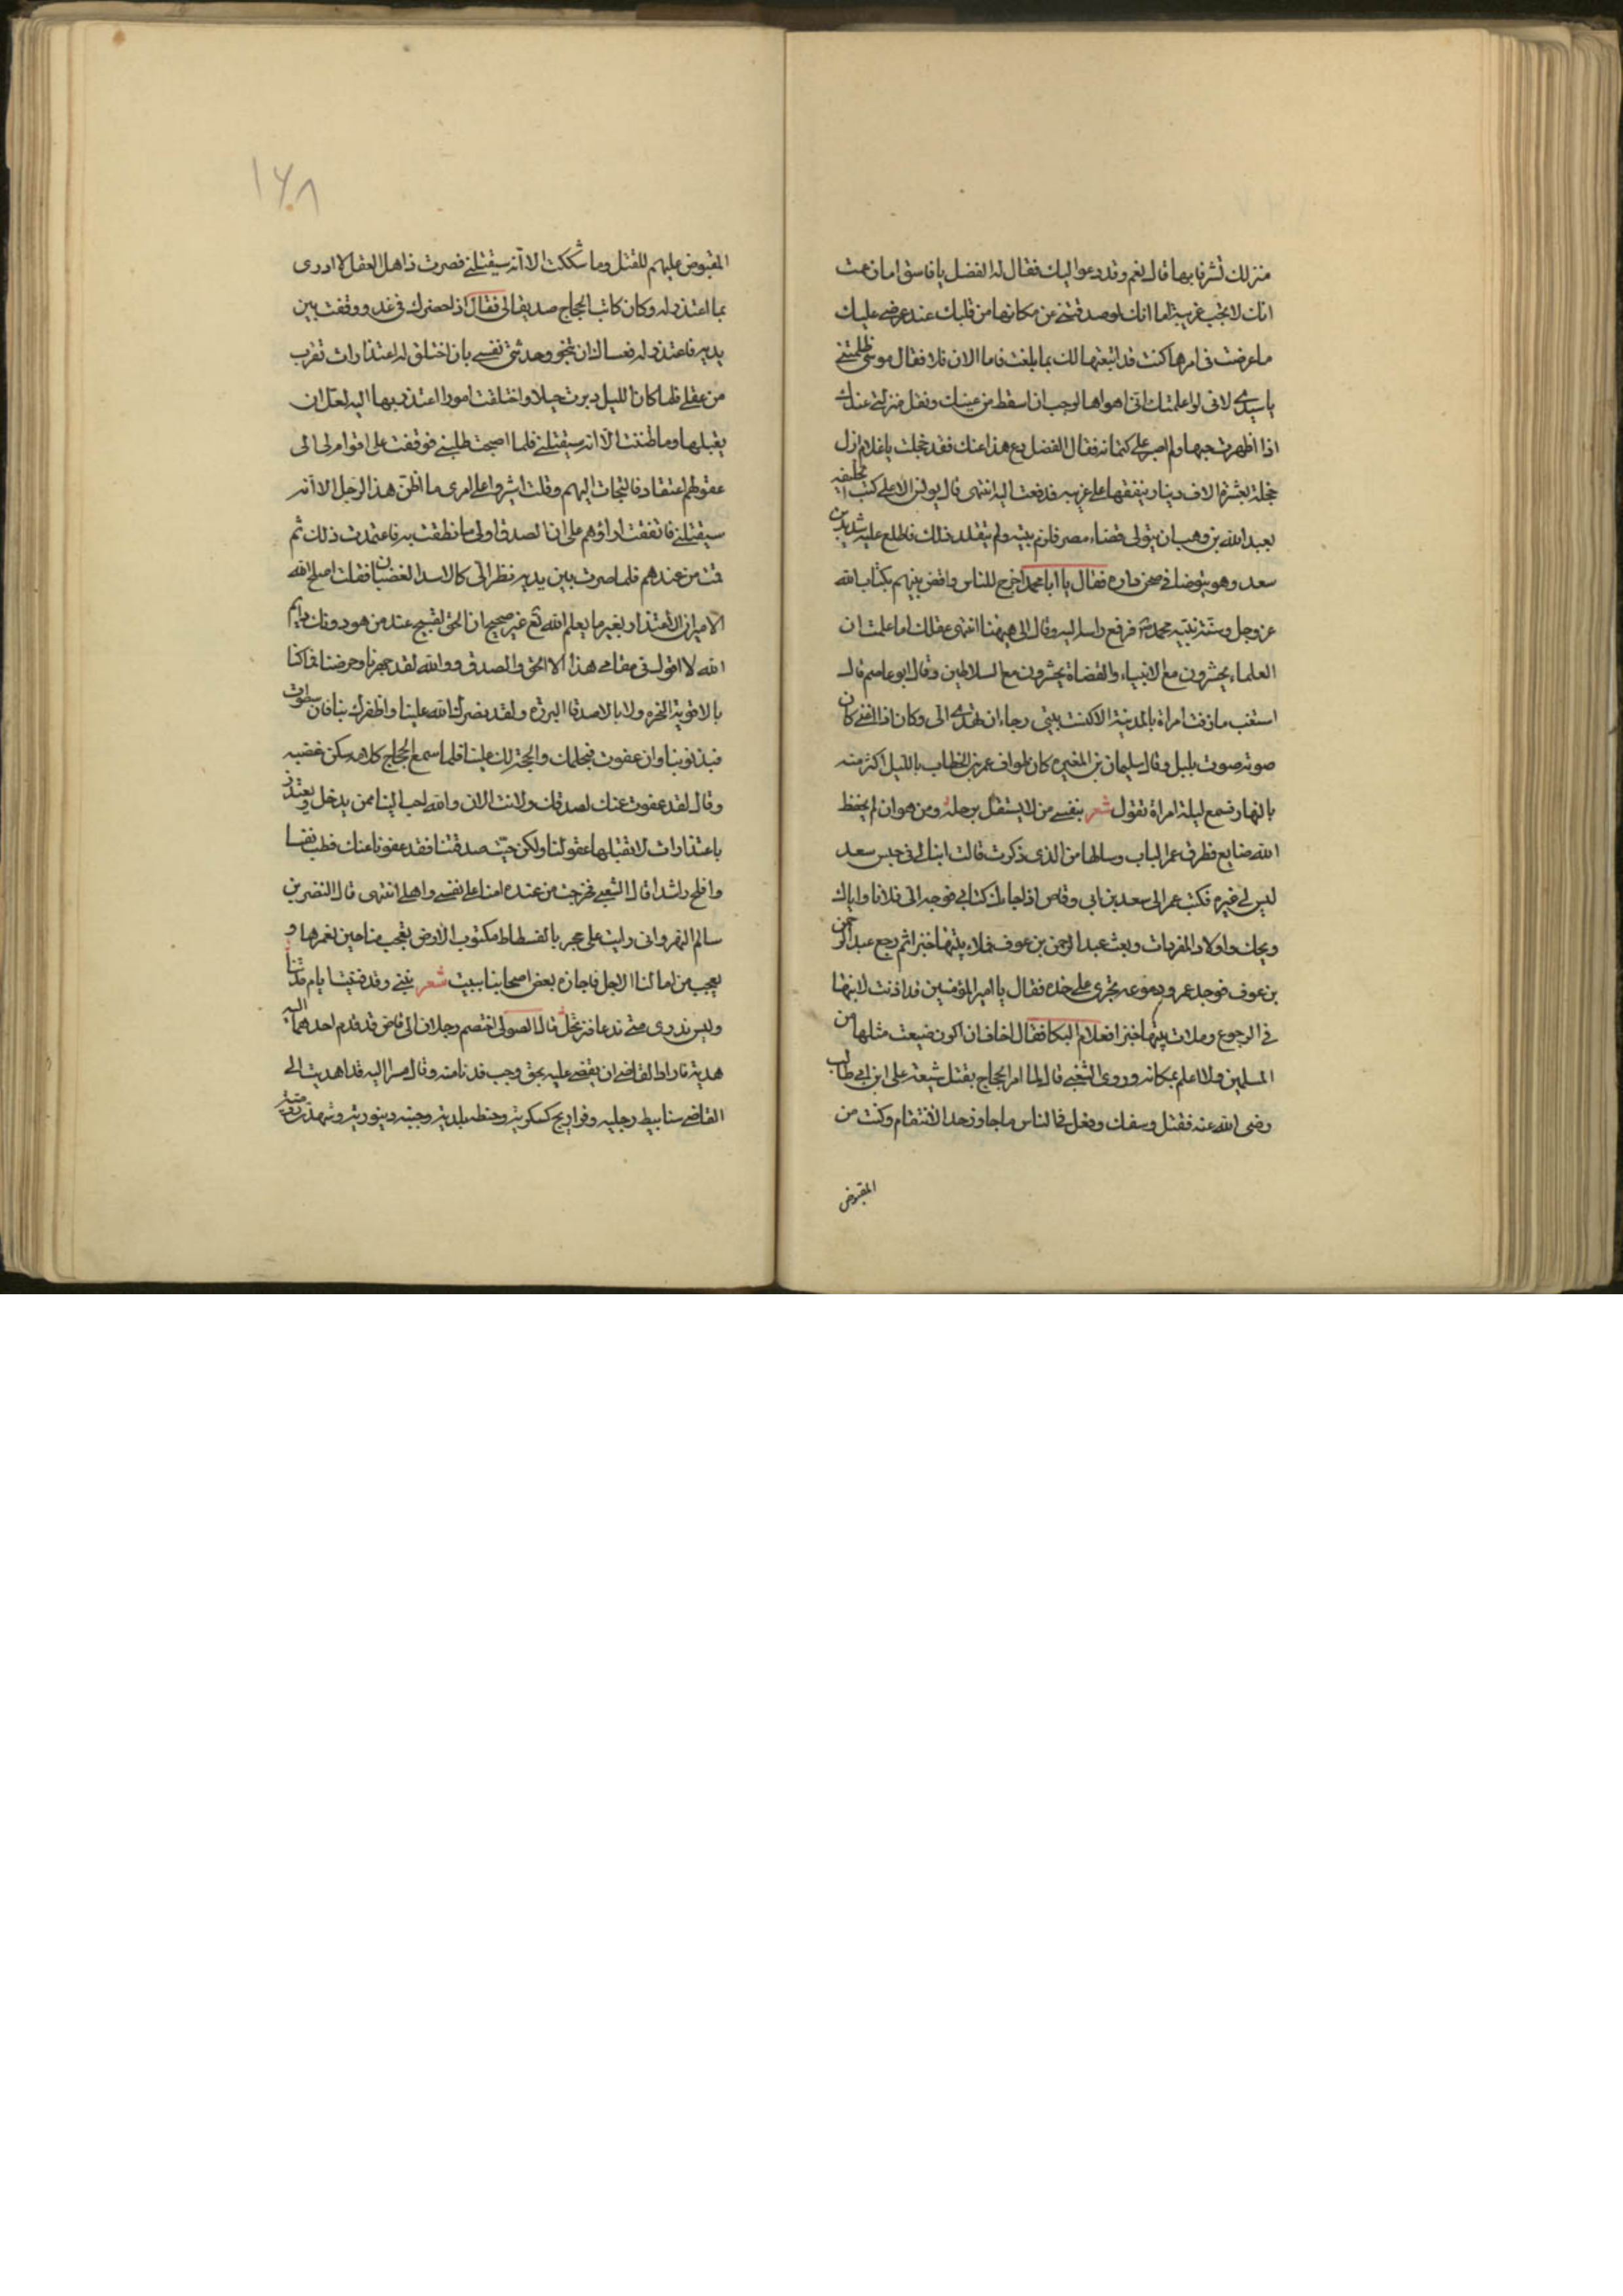 منزلك تشرفا بها قال نعم وقد دعوا اليك فقال له الفضل يا فاسق اما زعمت
انك لا تحب غريبة اما انك لو صدقتنى عن مكانها من قلبك عند عرضى عليك
ما عرضت فى امرها كنت قد اتبعتها لك بما بلغت فاما الان فلا فقال موسى ظلمتنى
يا سيدى لانى لو اعلمتك انى اهواها لوجب ان اسقط من عينك وتقل منزلتى عندك
اذا اظهرت حبها ولم اصبر على كتمانه فقال الفضل دع هذا عنك فقد خجلت يا غلام ازل
خجله بعشرة الاف دينار ينفقها على غريبه فدفعت اليه انتهى قال يونس الاعلى كتب الخليفه
بعبد الله بن وهب ان يتولى قضاء مصر فلزم بيته ولم يتقلد ذلك فاطلع عليه شديد بن
سعد وهو يتوضا فى صحن داره فقال يا ابا محمد اخرج للناس واقض بينهم بكتاب الله
عز وجل وسنة نبيه محمد فرفع راسه اليه وقال الى ههنا انتهى عقلك اما علمت ان
العلماء يحشرون مع الانبياء والقضاة يحشرون مع السلاطين وقال ابو عاصم قال
اشعب ما زفت امراة بالمدينة الا كنت بيتى رجاء ان تهدى الى وكان اذا الفنى كان
صوته صوت بلبل وقال سليمان بن المغيره كان طواف عمر بن الخطاب بالليل اكثر منه
بالنهار فسمع ليلة امراة تقول شعر بنفسى من لا يستقل برحله ومن هو ان لم يحفظ
الله ضايع فطرق عمر الباب وسالها من الذى ذكرت قالت ابنك لى فى جيش سعد
ليس لى غيره فكتب عمر الى سعد بن ابى وقاص اذا جاءك كتابى فوجه الى فلانا واياك
ويحك واولاد المفردات وبعث عبد الرحمن بن عوف فملاء بيتها خبزا ثم رجع عبد الرحمن
بن عوف فوجد عمر ودموعه تجرى على خده فقال يا امير المؤمنين قد اذنت لابنها
فى الرجوع وملات بيتها خبزا فعلام البكا فقال اخاف ان اكون ضيعت مثلها من
المسلمين ولا اعلم بمكانه وروى الشعبى قال لما امر الحجاج بقتل شيعة على ابن ابى طالب
رضى الله عنه فقتل وسفك وفعل فى الناس ما جاوز حد الانتقام وكنت من
المقبوض
١٦٨
المقبوض عليهم للقتل وما شككت الا انه سيقتلنى فصرت ذاهل العقل لا ادرى
بما اعتذر له وكان كاتب الحجاج صديقا لى فقال اذا حضرك فى غد ووقفت بين
يديه فاعتذر له فعساك ان تنجو وحدثتنى نفسى بان اختلق له اعتذارات تقرب
من عقلى فلما كان الليل دبرت حيلا واختلقت امورا اعتذر بها اليه لعل ان
يقبلها وما ظننت الا انه سيقتلنى فلما اصبحت طلبنى فوقفت على اقوام لى الى
عقولهم اعتقاد فالتجات اليهم وقلت اشيروا على امرى ما اظن هذا الرجل الا انه
سيقتلنى فاتفقت اراؤهم على ان الصدق اولى ما نطقت به فاعتمدت ذلك ثم
قمت من عندهم فلما صرت بين يديه نظر الى كالاسد الغضبان فقلت اصلح الله
الامير ان الاعتذار بغير ما يعلم الله تع غير صحيح وان الحق لقبيح عند من هو دونك وايم
الله لا اقول فى مقامى هذا الا الحق والصدق ووالله لقد جهرنا وحرضنا فما كنا
بالاقوية الفجره ولا بالاصدقا البرره ولقد نصرك الله علينا واظفرك بنا فان سطوت
فبذنوبنا وان عفوت فبحلمك والحجة لك علينا فلما سمع الحجاج كلامه سكن غضبه
وقال لقد عفوت عنك لصدقك ولانت الان والله احب الينا ممن يدخل ويعتذر
باعتذارات لا تقبلها عقولنا ولكن حيث صدقتنا فقد عفونا عنك فطب نفسا
وافلح راشدا قال الشعبى فخرجت من عنده امنا على نفسى واهلى انتهى قال النضر بن
سالم النهروانى رايت على حجر بالفسطاط مكتوب الارض تعجب منا حين نعمرها و
يعجب من امالنا الاجل فاجازه بعض اصحابنا ببيت شعر نبنى وقد فنيت ايام مدتنا
وليس ندرى متى ندعا فنرتحل قال الصولى اختصم رجلان الى قاض قد قدم احدهما اليه
هدية فاراد القاضى ان يقضى عليه بحق وجب فدنا منه وقال سرا اليه قد اهديت الى
القاضى سنابيط رجليه وفراريج كسكريه وحنطه بلديه وجبنه دينوريه وشهده روميه